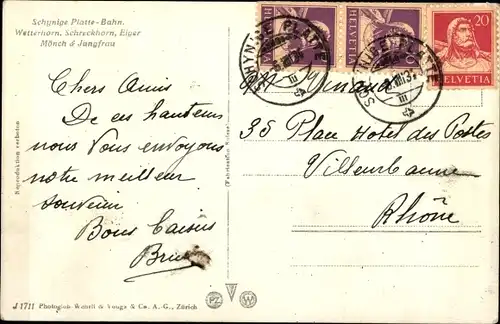 Schynige Platte-Bahn.
Wetterhorn, Schreckhorn, Eiger
Mönch & Jungfrau
Chers Amis
De ces hauteurs
nous Vous envoyons
notre meilleur
souvenir
Bons Baisers
HELVETIA
HELVETIA
20
HELVETIA
SCHYNIGE PLATTE
SCHYNIGE PLATTE
35 Place Hotel des Postes
Villeurbanne
Rhône
Reproduktion verboten
J 1711 Photoglob-Wehrli & Vouga & Co. A.-G., Zürich
PZ W